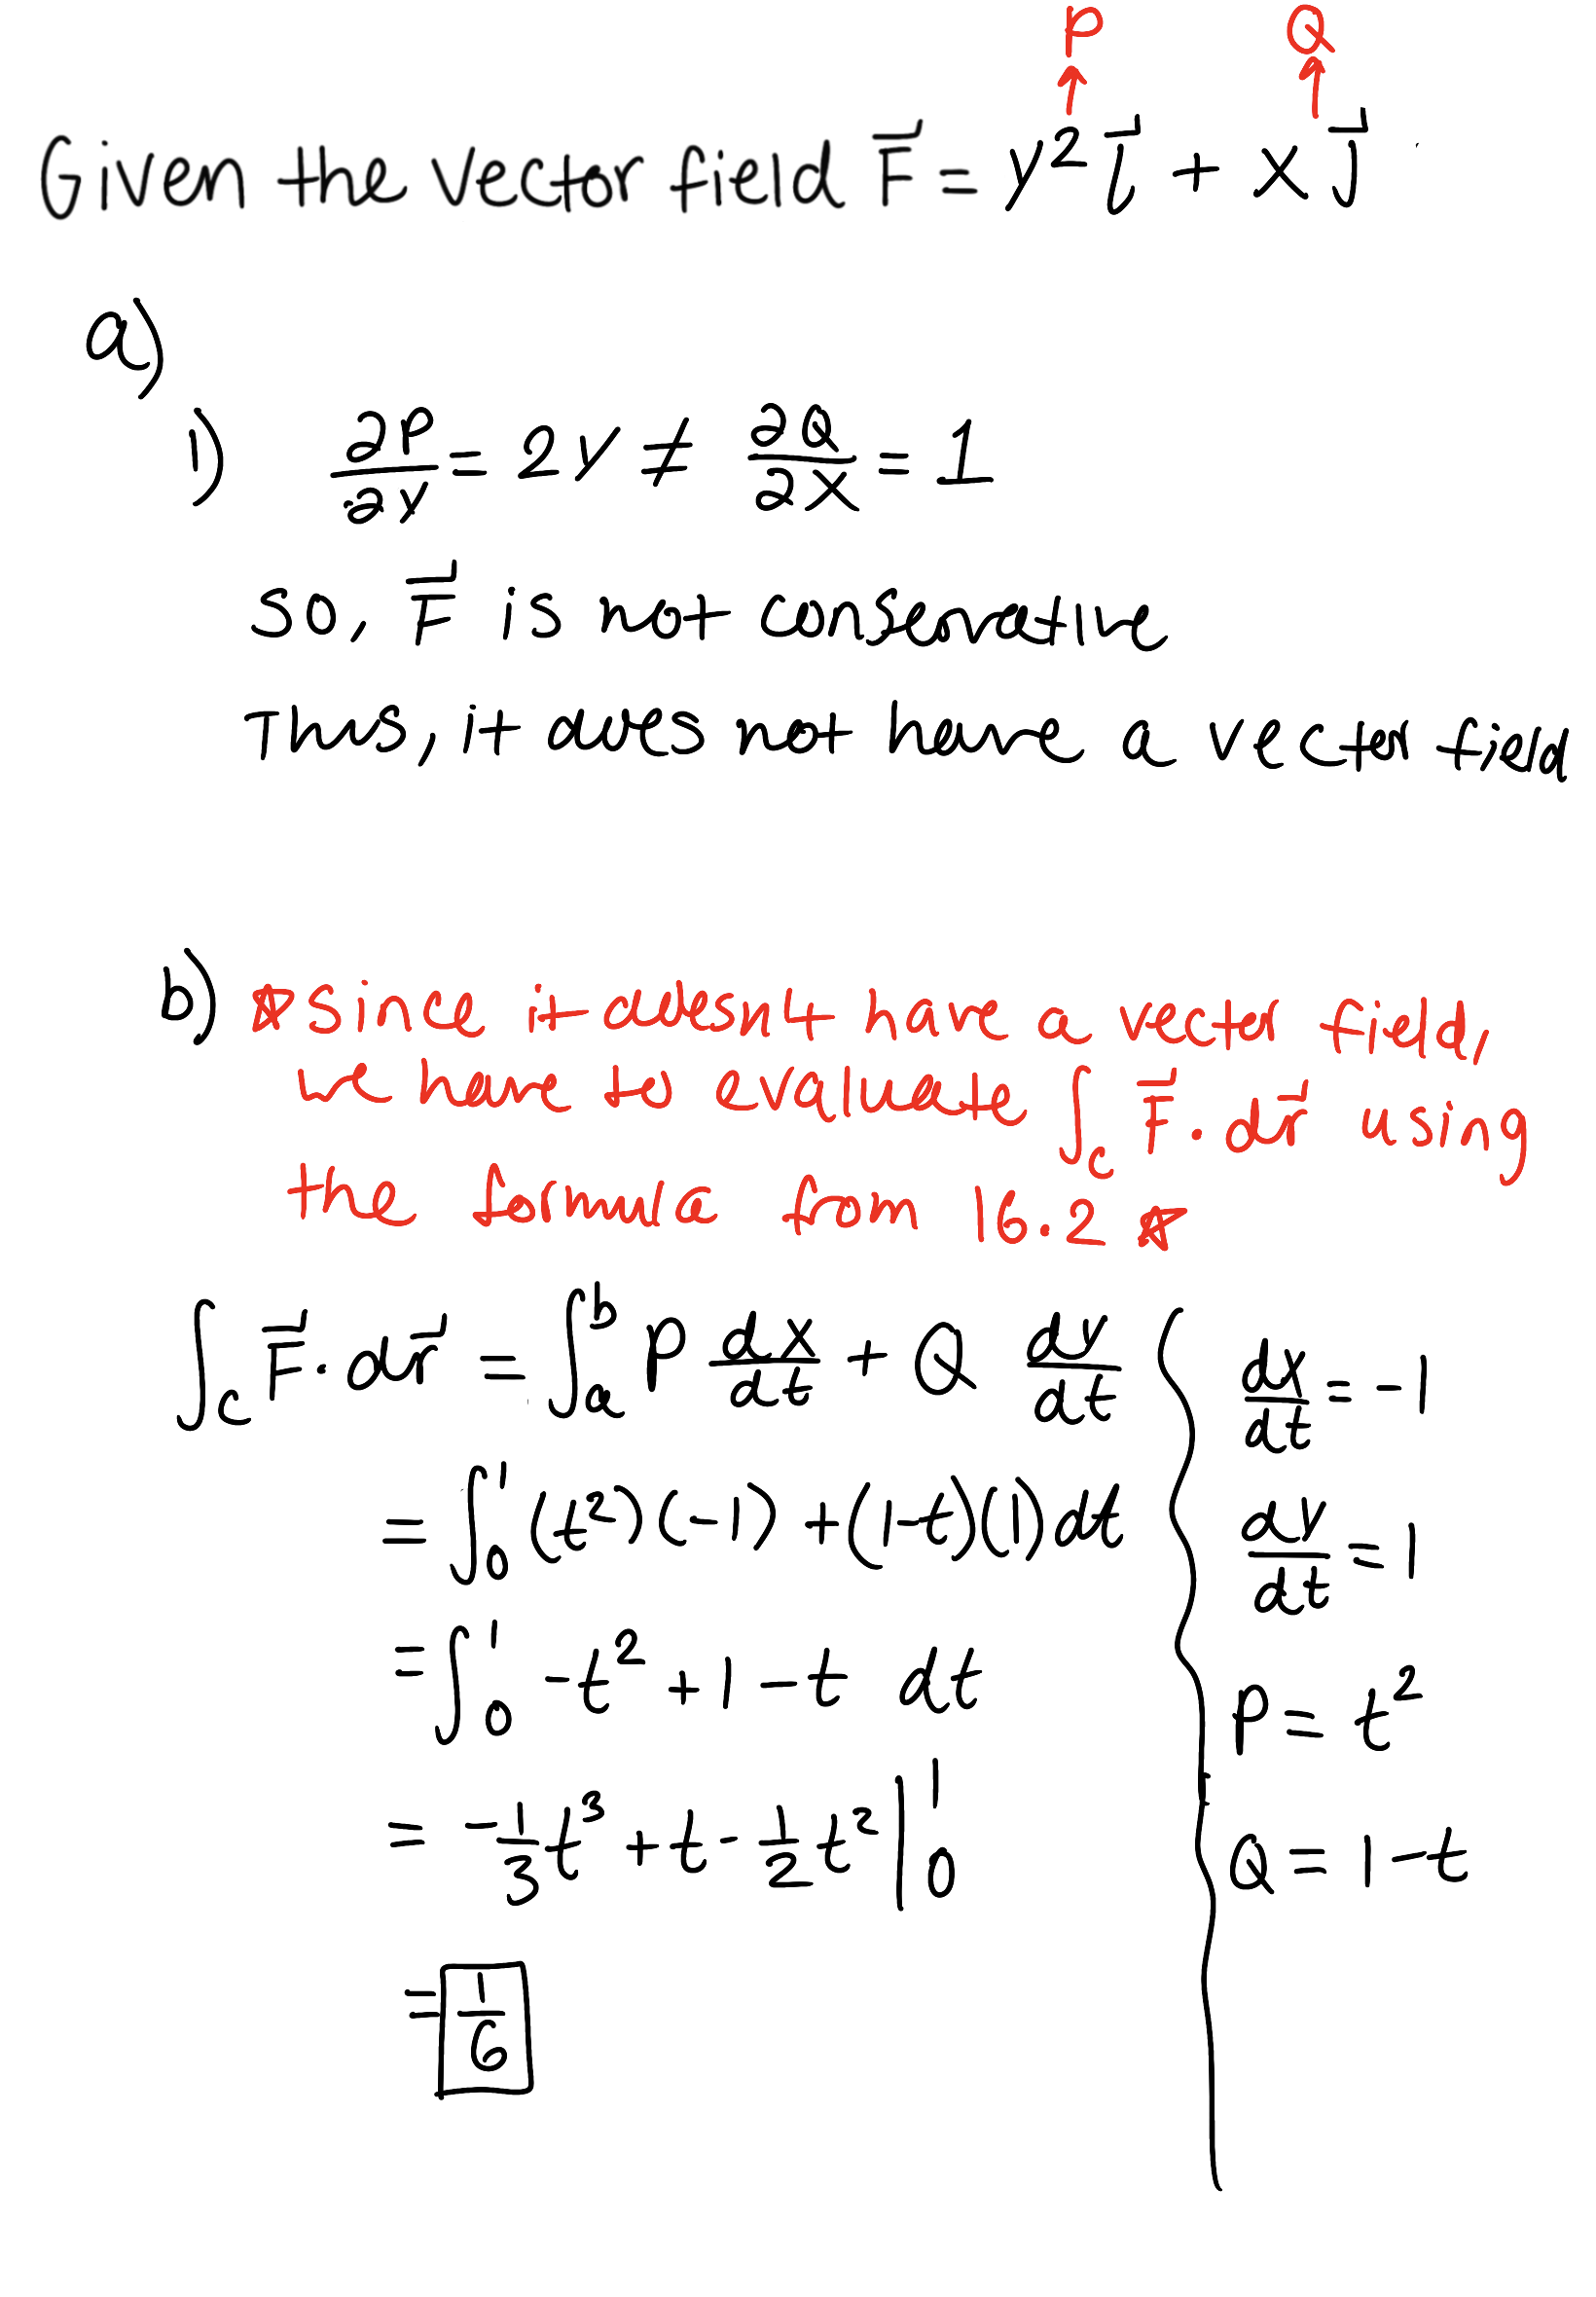 P Q
↑ ↑
Given the vector field F⃗ = y² i⃗ + x j⃗
a)
1) ∂P/∂y = 2y ≠ ∂Q/∂x = 1
so, F⃗ is not conservative
Thus, it does not have a vector field
b) ☆ since it doesn't have a vector field,
we have to evaluate ∫_C F⃗ · dr⃗ using
the formula from 16.2 ☆
∫_C F⃗ · dr⃗ = ∫_a^b P dx/dt + Q dy/dt
= ∫_0^1 (t²)(-1) + (1-t)(1) dt
= ∫_0^1 -t² + 1 - t dt
= -1/3 t³ + t - 1/2 t² |_0^1
= 1/6
dx/dt = -1
dy/dt = 1
P = t²
Q = 1-t